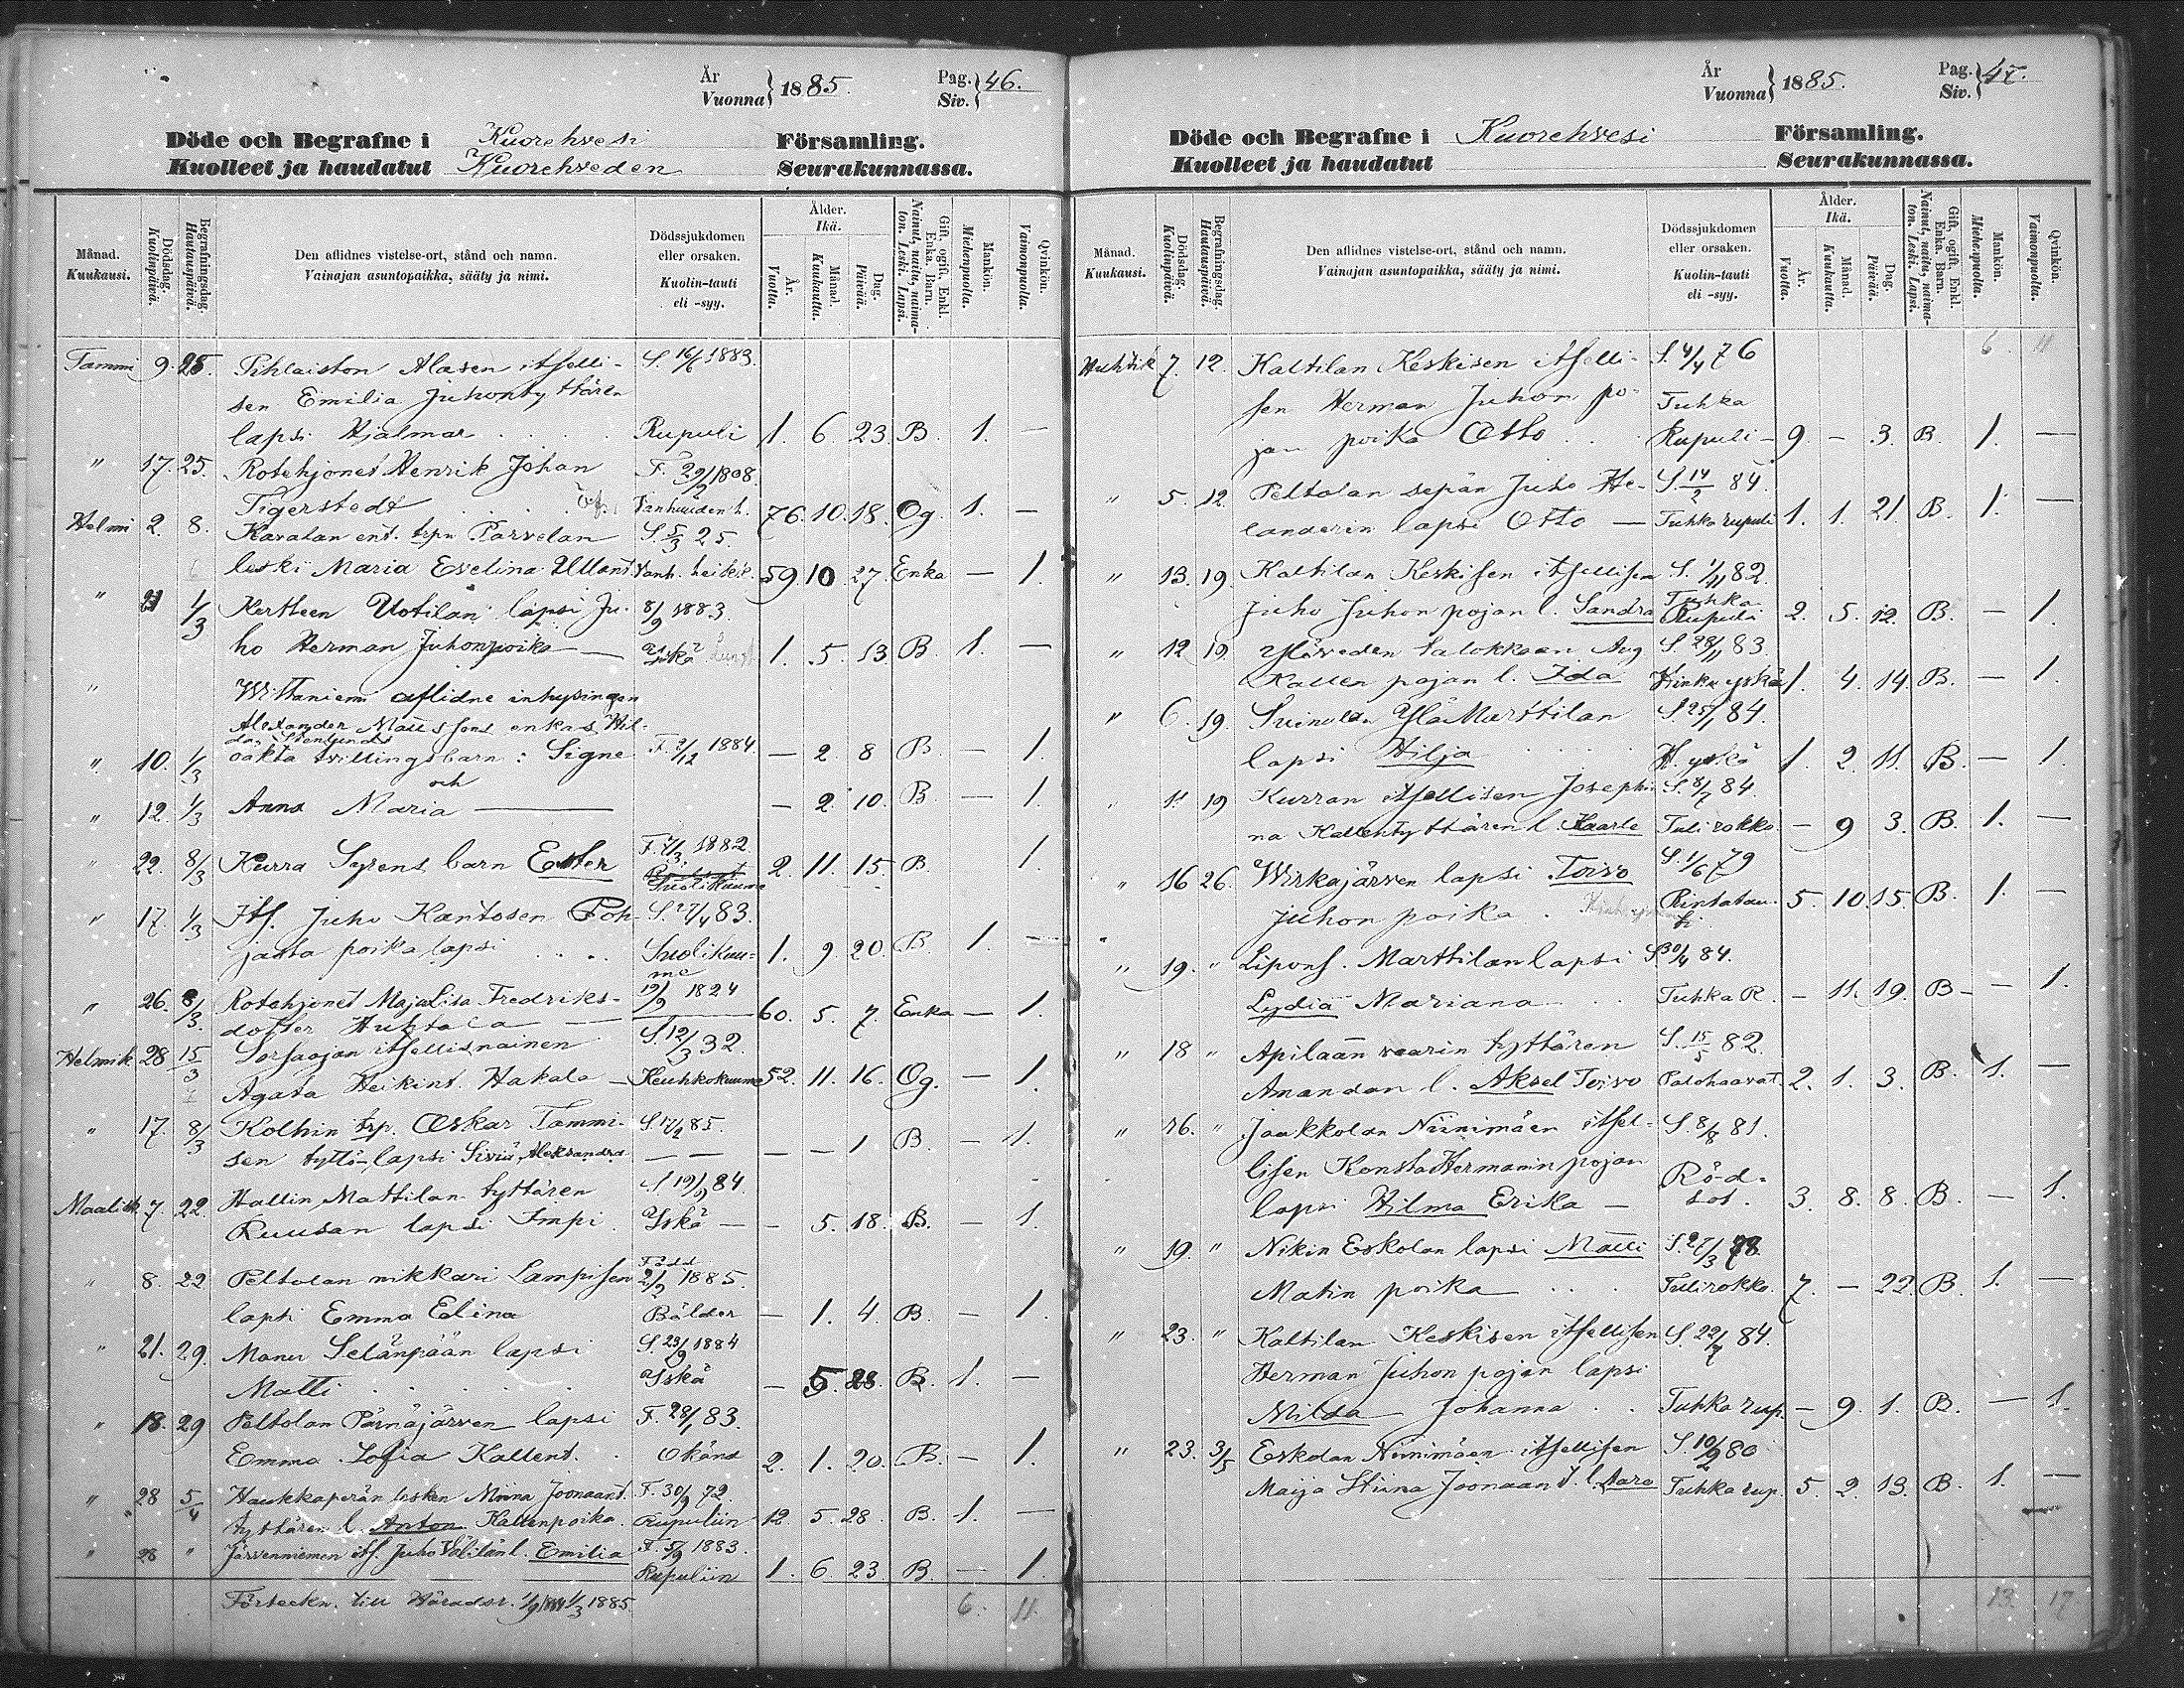 År
Vuonna } 1885.
Pag.
Siv. } 46.
Döde och Begrafne i Kuorehvesi Församling.
Kuolleet ja haudatut Kuorehveden Seurakunnassa.
Månad. Kuukausi.
Dödsdag. Kuolinpäivä.
Begrafningsdag. Hautauspäivä.
Den aflidnes vistelse-ort, stånd och namn.
Vainajan asuntopaikka, sääty ja nimi.
Dödssjukdomen eller orsaken.
Kuolin-tauti eli -syy.
Ålder. Ikä.
År. Vuotta.
Månad. Kuukautta.
Dag. Päivää.
Gift, ogift, Enkl. Enka. Barn.
Nainut, naitu, naimaton. Leski. Lapsi.
Mankön. Miehenpuolta.
Qvinkön. Vaimonpuolta.
Tammi 9. 25. Pihlaiston Alasen itselli- S. 16/6 1883.
sen Emilia Juhontyttären
lapsi Hjalmar . . . . Rupuli 1. 6. 23. B. 1. —
" 17. 25. Rotehjonet Henrik Johan F. 29/2 1808.
Tigerstedt . . . . Vanhuuden h. 76. 10. 18. Og. 1. —
Helmi 2. 8. Kavalan ent. trpn Parvelan S. 5/3 25.
leski Maria Evelina Vanh. heikk. 59. 10 27. Enka — 1.
" 21 1/3 Kertteen Uotilan lapsi Ju- 8/9 1883.
ho Herman Juhonpoika — Yskä 1. 5. 13 B 1. —
" Wittaniemi aflidne inhysingen
Alexander Mattssons enkas Hil-
da Stenlunds
" 10. 1/3 oäkta tvillingsbarn: Signe F. 2/12 1884. — 2 8 B. — 1.
och
" 12. 1/3 Anna Maria — — 2. 10. B — 1.
" 22. 8/3 Kurra Syrens barn Ester F. 7/3 1882. 2. 11. 15. B. 1.
Suolikuume
" 17. 1/3 Its. Juho Kantosen Poh- S. 27/4 83.
jasta poika lapsi . . . . Suolikuu- 1. 9. 20. B 1. —
me
" 26. 8/3. Rotehjonet Maja Lisa Fredriks- 19/9 1824 60. 5. 7. Enka — 1.
dotter Huhtala —
Helmik. 28 15/3 Sorsaojan itsellisnainen S. 12/3 32.
Agata Heikint. Hakala — Keuhkokuume 52. 11. 16. Og. — 1.
" 17. 8/3 Kolhin trp. Oskar Tammi- S. 17/2 85.
sen tyttö-lapsi Siviä Aleksandra — — — — 1 B. — 1.
Maalisk. 7. 22. Hallin Mattilan tyttären S 19/9 84.
Ruusan lapsi Impi. Yskä — — 5. 18. B. — 1.
Född
" 8. 22 Peltolan nikkari Lampisen 2/2 1885.
lapsi Emma Elina Bölder — 1. 4. B. — 1.
" 21. 29. Manu Selänpään lapsi S. 23/9 1884
Matti . . . . . Yskä — 5. 28. B. 1. —
" 18. 29 Peltolan Pärnäjärven lapsi F. 28/1 83.
Emma Sofia Kallent. . Okänd 2. 1. 20. B. — 1.
" 28 5/4 Haukkaperän lesken Minna Joonaant. F. 30/9 72.
tyttären l. Anton Kallenpoika. Rupuliin 12. 5. 28. B. 1. —
" 28 " Järvenniemen its. Juho Välilän l. Emilia F. 5/9 1883.
Rupuliin 1. 6. 23. B. — 1.
Förteckn. till Häradsr. 1/9 1884 1/3 1885. 6. 11.
År
Vuonna } 1885.
Pag.
Siv. } 47.
Döde och Begrafne i Kuorehvesi Församling.
Kuolleet ja haudatut Seurakunnassa.
Månad. Kuukausi.
Dödsdag. Kuolinpäivä.
Begrafningsdag. Hautauspäivä.
Den aflidnes vistelse-ort, stånd och namn.
Vainajan asuntopaikka, sääty ja nimi.
Dödssjukdomen eller orsaken.
Kuolin-tauti eli -syy.
Ålder. Ikä.
År. Vuotta.
Månad. Kuukautta.
Dag. Päivää.
Gift, ogift, Enkl. Enka. Barn.
Nainut, naitu, naimaton. Leski. Lapsi.
Mankön. Miehenpuolta.
Qvinkön. Vaimonpuolta.
6 11
Huhtik 7. 12. Kaltilan Keskisen itselli- S. 4/4 76
sen Herman Juhon po- Tuhka
jan poika Otto . . Rupuli — 9 — 3. B. 1. —
" 5. 12. Peltolan sepän Juho He- S. 14/2 84.
landerin lapsi Otto — Tuhkarupuli 1. 1. 21. B. 1. —
" 13. 19. Kaltilan Keskisen itsellisen S. 1/11 82.
Juho Juhon pojan l. Sandra Tuhka Rupuli 2. 5. 12. B. — 1.
" 12 19. Yläveden Salokkaan Aug. S. 28/11 83.
Kallen pojan l. Ida Hinku yskä 1. 4. 14. B. — 1.
" 6. 19. Suinulan YläMarttilan S. 25/1 84.
lapsi Hilja . . . . H. yskö 1. 2. 11. B. — 1.
" 11 19 Kurran itsellisen Josephi- S. 8/7 84.
na Kallentyttären l. Kaarle Tulirokko. — 9 3. B. 1. —
" 16 26. Wirkajärven lapsi Toivo S. 1/6 79
Juhon poika . Rintatau- 5. 10. 15. B. 1. —
ti.
" 19. " Lipons. Marttilan lapsi S. 30/4 84.
Lydia Mariana . . Tuhka R. — 11. 19. B — — 1.
" 18 " Apilaan vaarin tyttären S. 15/5 82.
Amandan l. Aksel Toivo Palohaavat. 2. 1. 3. B. 1. —
" 16. " Jaakkolan Niinimäen itsel- S. 8/8 81.
lisen Konsta Hermannin pojan
lapsi Hilma Erika — Röd-sot. 3. 8. 8. B. — 1.
" 19. " Nikin Eskolan lapsi Matti S. 27/3 78.
Matin poika . . . Tulirokko. 7. — 22. B. 1. —
" 23. " Kaltilan Keskisen itsellisen S. 22/7 84.
Herman Juhon pojan lapsi
Milda Johanna . . Tuhka rup. — 9. 1. B. — 1.
" 23. 3/5 Eskolan Niinimäen itsellisen S. 10/2 80
Maija Stiina Joonaan t. l. Aaro Tuhka rup. 5. 2. 13. B. 1. —
13. 17.